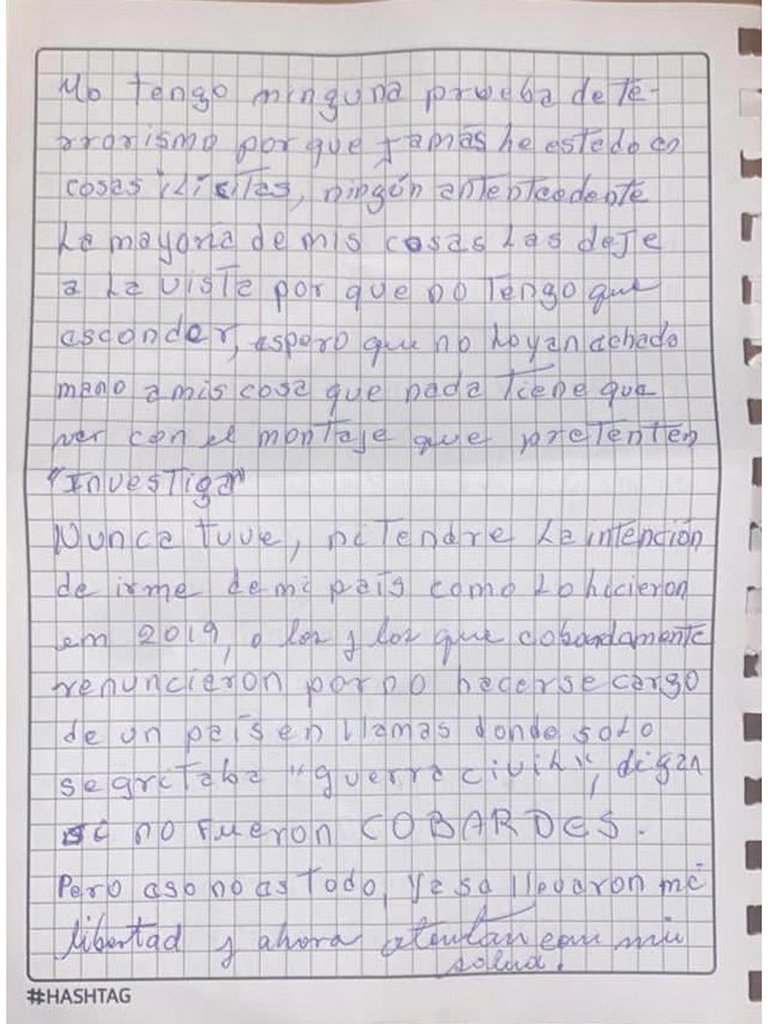 No tengo ninguna prueba de te-
rrorismo por que jamás he estedo en
cosas ilícitas, ningún antentcedente
La mayoría de mis cosas las deje
a la viste por que no tengo que
esconder, espero que no hoyan achado
mano a mis cosa que nada tiene que
ver con el montaje que pretenten
"Investigar"
Nunca tuve, ni tendre la intención
de irme de mi país como lo hicieron
em 2019, o los y los que cobardamente
renuncieron por no hacerse cargo
de un país en llamas donde solo
se gritaba "guerra civil", digan
si no fueron COBARDES.
Pero eso no es todo, ya se llevaron mi
libertad y ahora atentan con mi
salud.
#HASHTAG